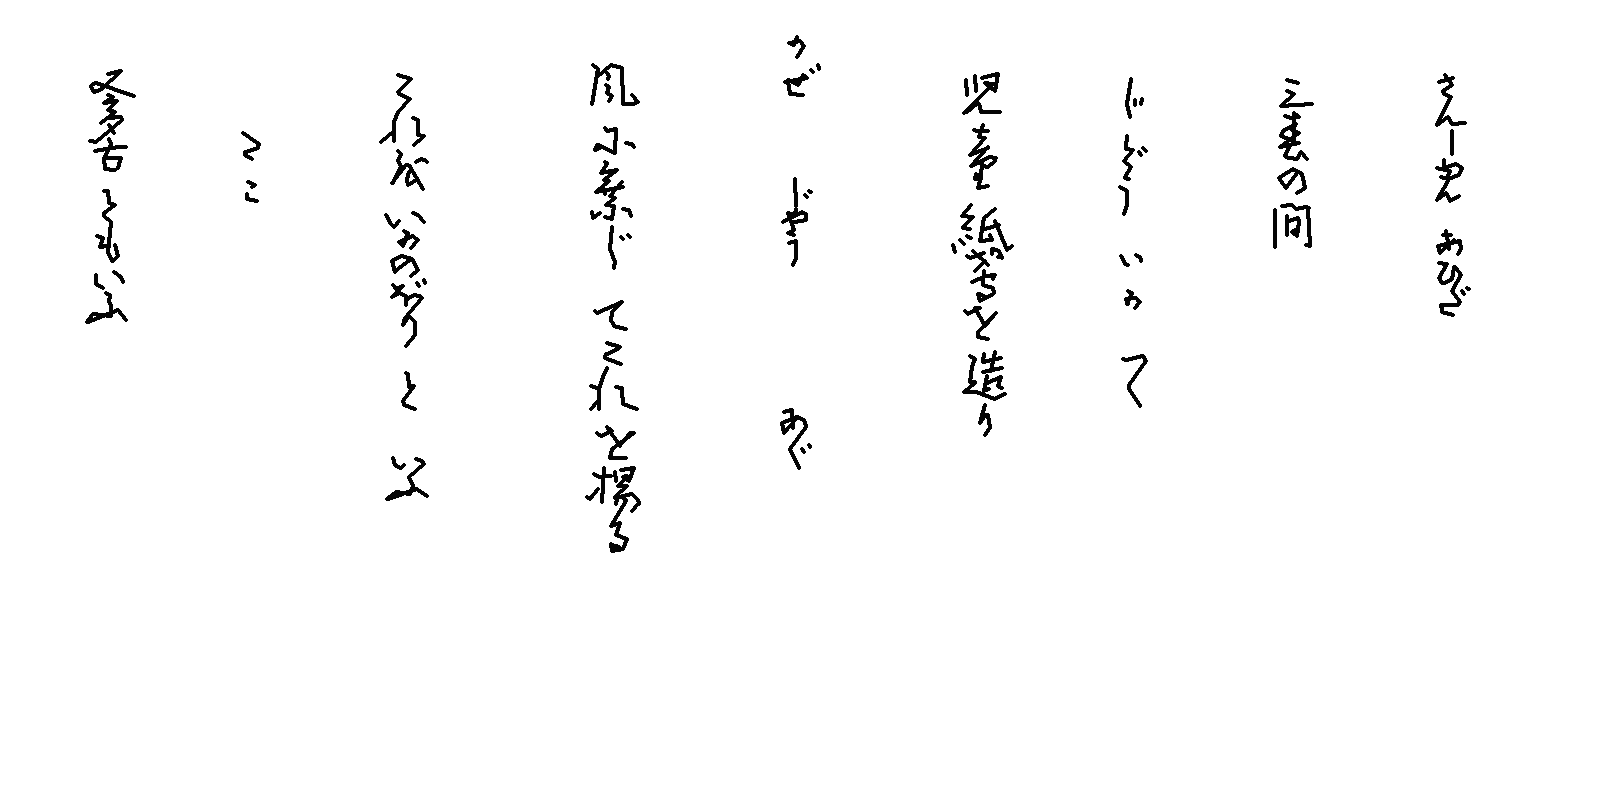 さんしゅん あひだ
三春の間
じどう いか つく
児童紙鳶を造り
かぜ じやう あぐ
風に乗じてこれを揚る
これをいかのぼりといふ
たこ
又多古ともいふ